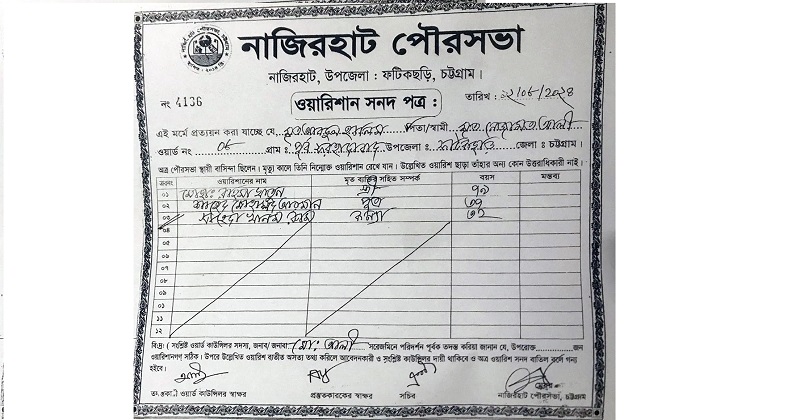 নাজিরহাট পৌরসভা
নাজিরহাট, উপজেলা : ফটিকছড়ি, চট্টগ্রাম।
নং 4136
তারিখ :
ওয়ারিশান সনদ পত্র :
এই মর্মে প্রত্যয়ন করা যাচ্ছে যে, মৃত আবদুল হালিম পিতা/স্বামী মৃত আলী
ওয়ার্ড নং ০৮ গ্রাম : পূর্ব ফরহাদাবাদ উপজেলা : জেলা : চট্টগ্রাম।
অত্র পৌরসভা স্থায়ী বাসিন্দা ছিলেন। মৃত্যু কালে তিনি নিম্নোক্ত ওয়ারিশ রেখে যান। উল্লেখিত ওয়ারিশ ছাড়া তাঁহার অন্য কোন উত্তরাধিকারী নাই।
ক্রঃনং ওয়ারিশানের নাম মৃত ব্যক্তির সহিত সম্পর্ক বয়স মন্তব্য
০১ স্ত্রী
০২ পুত্র ৩৭
০৩ কন্যা ৩২
০৪
০৫
০৬
০৭
০৮
০৯
০১
১১
১২
বিঃদ্রঃ সংশ্লিষ্ট ওয়ার্ড কাউন্সিলর সদস্য, জনাব/জনাবা মো: আলী সরেজমিনে পরিদর্শন পূর্বক তদন্ত করিয়া জানান যে, উপরোক্ত জন
ওয়ারিশানগণ সঠিক। উপরে উল্লেখিত ওয়ারিশ ব্যতীত অসত্য তথ্য করিলে আবেদনকারী ও সংশ্লিষ্ট কাউন্সিলর দায়ী থাকিবে ও অত্র ওয়ারিশ সনদ বাতিল বলে গন্য
হইবে।
ওয়ার্ড কাউন্সিলর স্বাক্ষর প্রস্তুতকারকের স্বাক্ষর সচিব নাজিরহাট পৌরসভা, চট্টগ্রাম